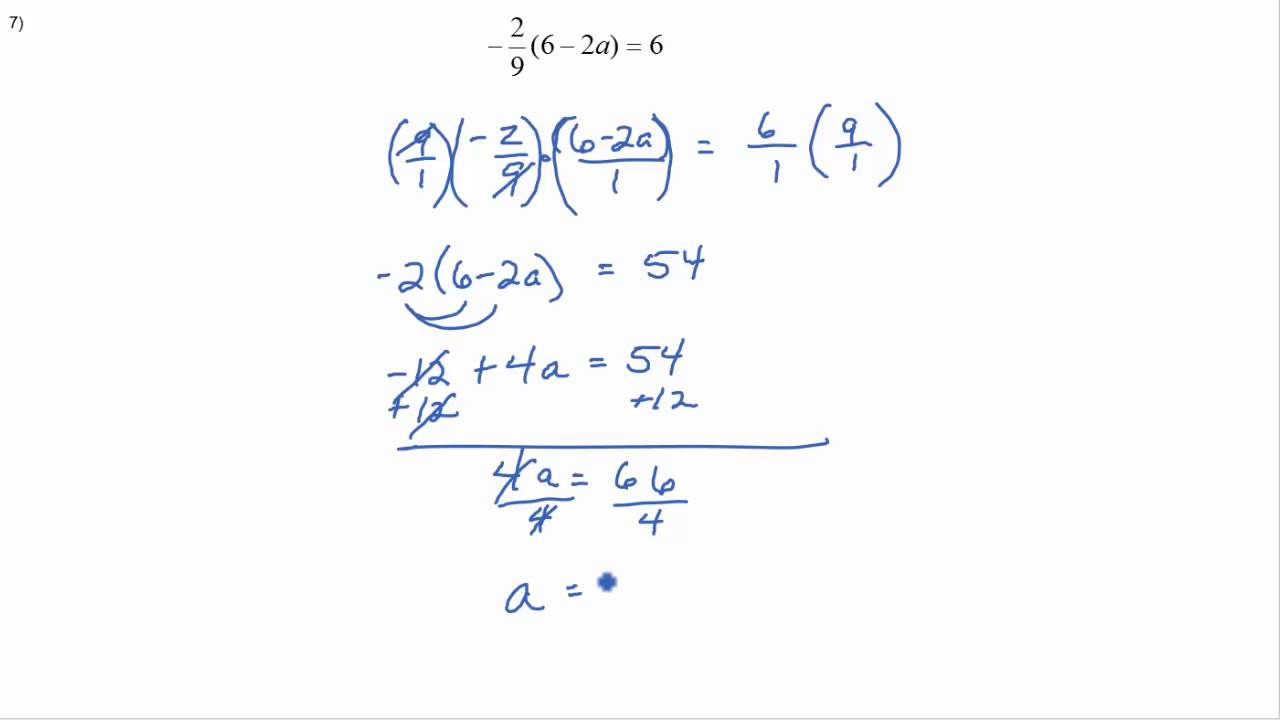 7)
-2/9(6 – 2a) = 6
(9/1)(-2/9)·((6-2a)/1) = 6/1(9/1)
-2(6-2a) = 54
-12 +4a = 54
+12 +12
4a/4 = 66/4
a =